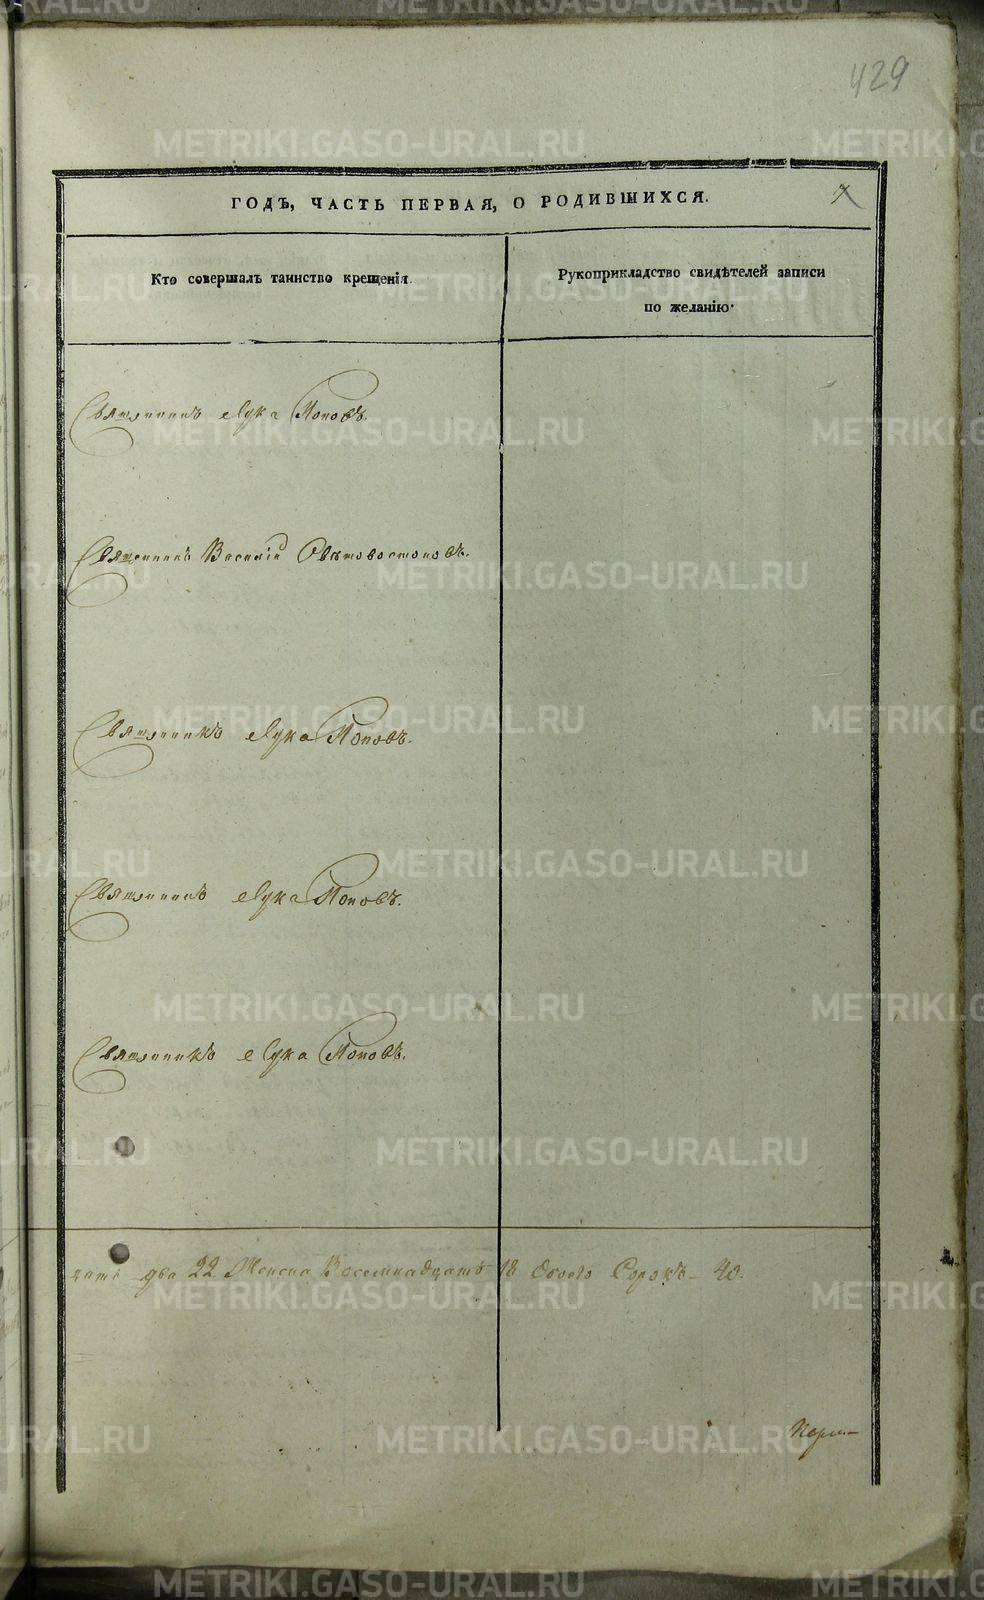 429
ГОДЪ, ЧАСТЬ ПЕРВАЯ, О РОДИВШИХСЯ.
7
Кто совершалъ таинство крещенія.
Рукоприкладство свидѣтелей записи
по желанію.
Священникъ Лука Поповъ.
Священникъ Василій Свѣтовостоковъ.
Священникъ Лука Поповъ.
Священникъ Лука Поповъ.
Священникъ Лука Поповъ.
цать два 22 Женска Восемнадцать 18 Обоего Сорокъ 40.
METRIKI.GASO-URAL.RU